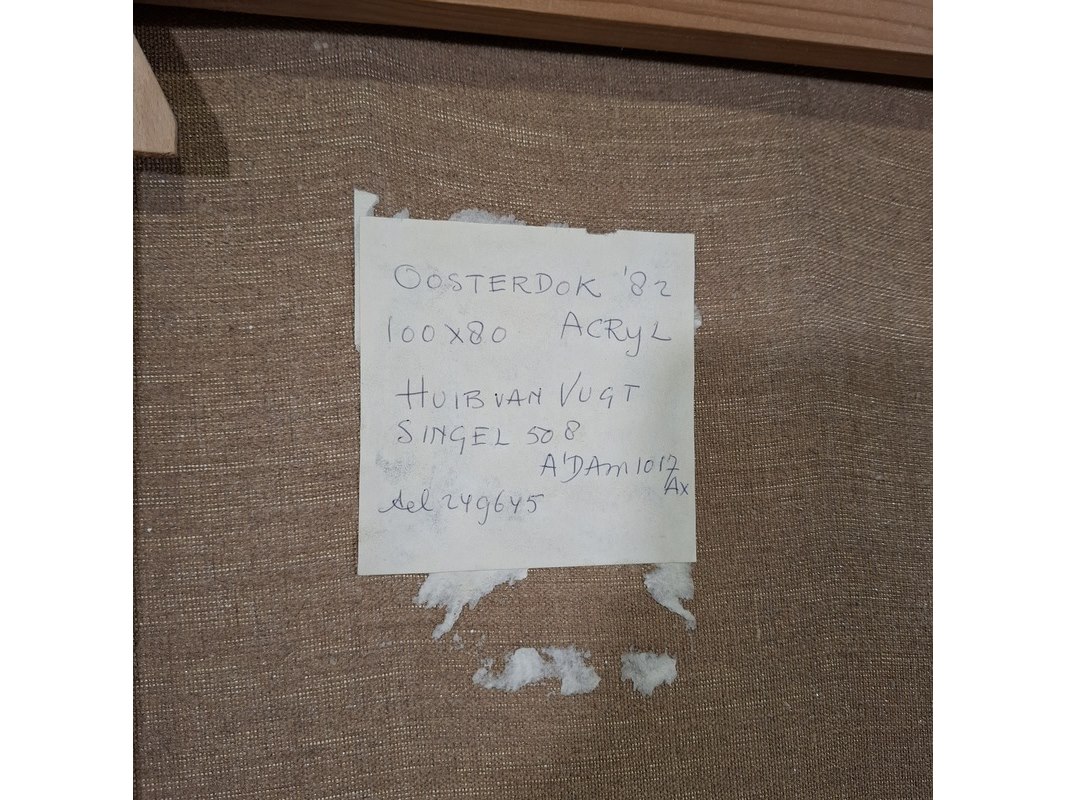 OOSTERDOK '82
100X80 ACRYL
HUIB VAN VUGT
SINGEL 508
A'DAM 1017
AX
tel 249645